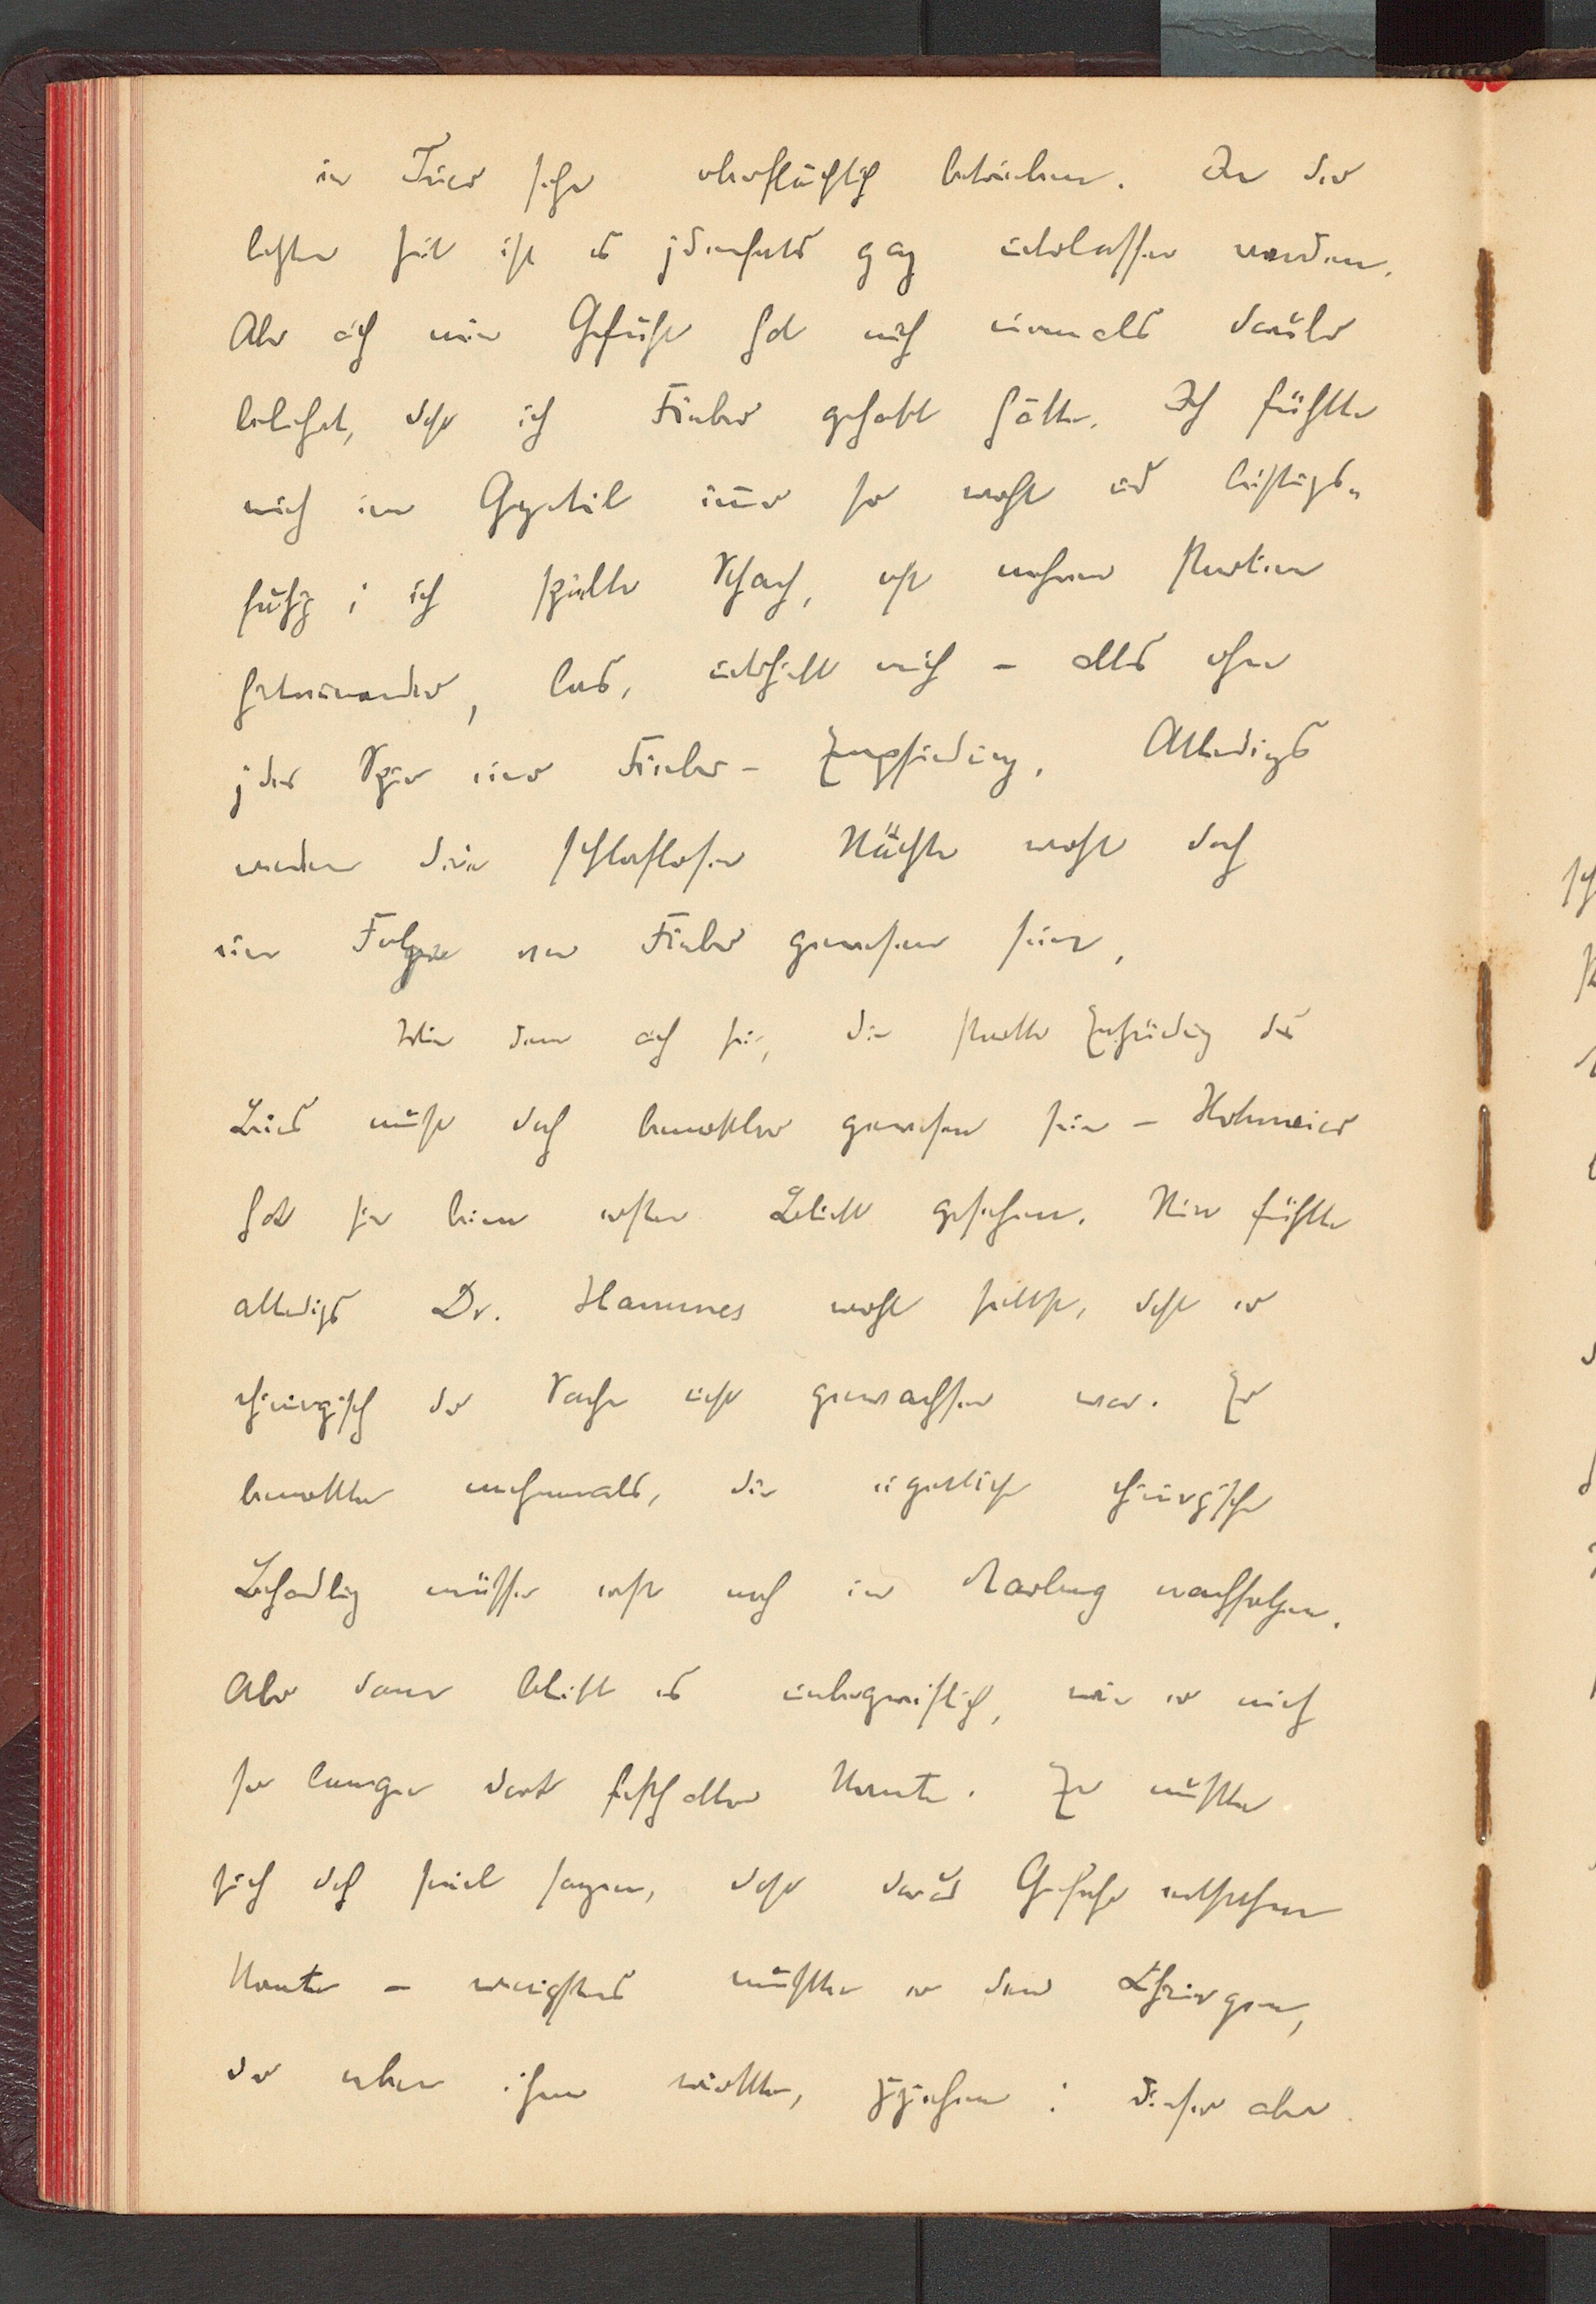 in Trier sehr oberflächlich betrieben. In der
letzten Zeit ist es jedenfalls ganz unterlassen worden.
Aber auch mein Gefühl hat mich niemals darüber
belehrt, dass ich Fieber gehabt hätte. Ich fühlte
mich im Gegenteil immer so wohl und leistungs-
fähig; ich spielte Schach, oft mehrere Partien
hintereinander, las, unterhielt mich – alles ohne
jede Spur einer Fieber-Empfindung. Allerdings
werden die schlaflosen Nächte wohl doch
eine Folge von Fieber gewesen sein.
Wie dem auch sei, die starke Entzündung des
Beines muss doch bemerkbar gewesen sein – Hohmeier
hat sie beim ersten Anblick gesehen. Nun fühlte
allerdings Dr. Hammes wohl selbst, dass er
chirurgisch der Sache nicht gewachsen war. Er
bemerkte mehrmals, die eigentliche chirurgische
Behandlung müsse erst noch in Marburg nachfolgen.
Aber dann bleibt es unbegreiflich, wie er mich
so lange dort festhalten konnte. Er musste
sich doch soviel sagen, dass daraus Gefahr entstehen
konnte – wenigstens musste er den Chirurgen,
der neben ihm wirkte, zuziehen: dieser aber